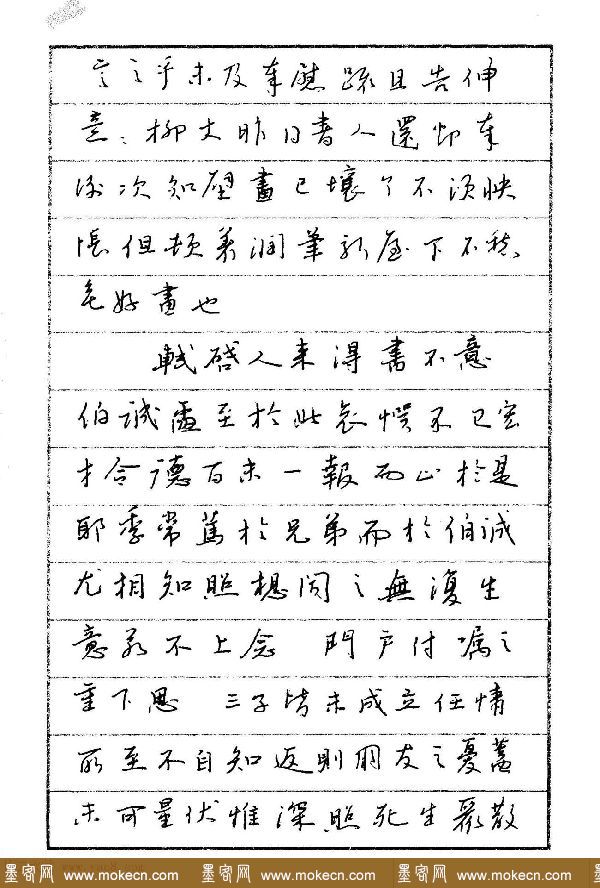 言之乎未及奉慰疏且告伸
意柳丈昨日書人還即奉
謝次知壁畫已壞了不須怏
悵但頓著潤筆新屋下不愁
無好畫也
軾啓人來得書不意
伯誠遽至於此哀愕不已宏
才令德百未一報而止於是
耶季常篤於兄弟而於伯誠
尤相知照想聞之無復生
意若不上念 門戶付囑之
重下思 三子皆未成立任情
所至不自知返則朋友之憂蓋
未可量伏惟深照死生聚散
墨客网 www.mokecn.com 墨客网 www.mokecn.com 墨客网 www.mokecn.com